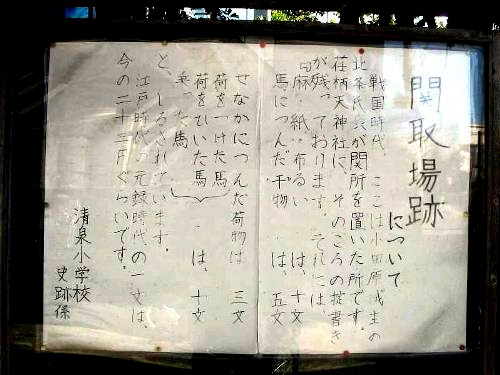 関取場跡
について
戦国時代、ここは小田原城主の
北条氏長が関所を置いた所です。
荏柄天神社に、そのころの掟書き
が残っております。それには、
麻・紙・布るいは、十文
馬につんだ干物は、五文
せなかにつんだ荷物は三文
荷をつけた馬
荷をひいた馬
乗った馬
は、十文
と、しるされています。
江戸時代の元録時代の一文は、
今の二十三円ぐらいです。
清泉小学校
史跡係